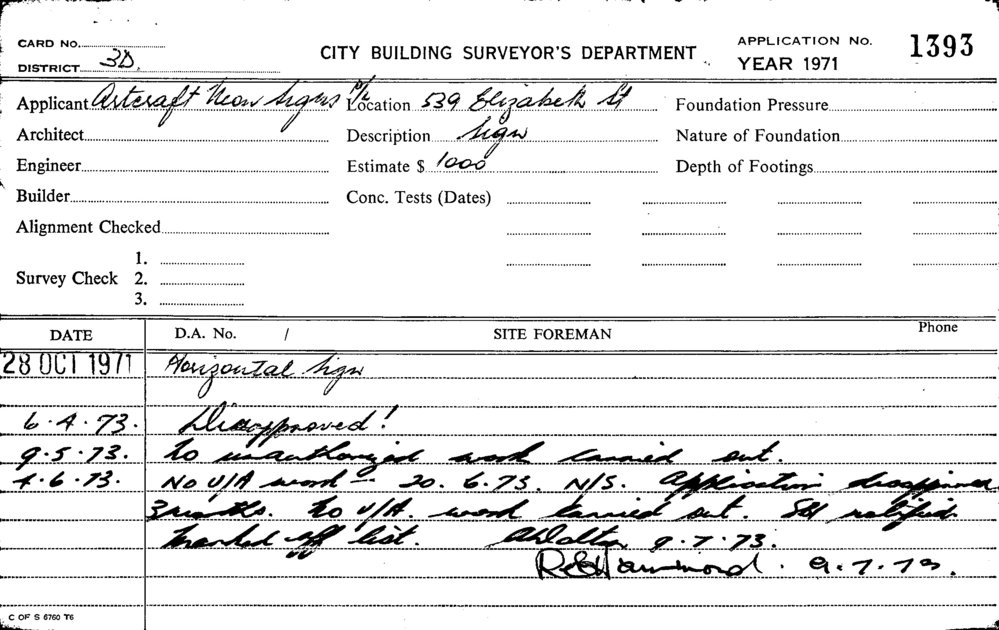 CARD No.
DISTRICT 3D.
CITY BUILDING SURVEYOR'S DEPARTMENT
APPLICATION No. 1393
YEAR 1971
Applicant Artcraft Neon Signs P/L Location 539 Elizabeth St Foundation Pressure
Architect Description Sign Nature of Foundation
Engineer Estimate $ 1000 Depth of Footings
Builder Conc. Tests (Dates)
Alignment Checked
1.
Survey Check 2.
3.
DATE D.A. No. / SITE FOREMAN Phone
28 OCT 1971 Horizontal Sign
6.4.73. Disapproved!
9.5.73. No unauthorized work carried out.
4.6.73. No U/A work - 20.6.73. N/S. Application disapproved
3 months. No U/A. work carried out. notified
marked off list. 9.7.73.
Hammond. 9.7.73.
C OF S 6760 T6